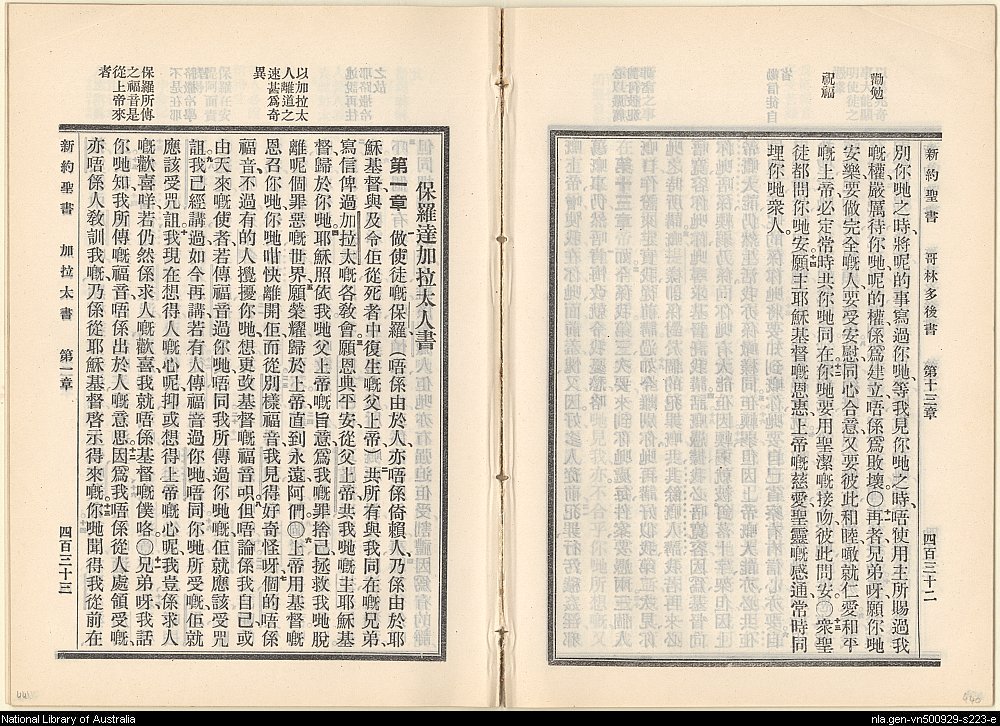 勸勉
祝福
新約聖書 哥林多後書 第十三章 四百三十二
別你哋之時、將呢的事寫過你哋、等我見你哋之時、唔使用主所賜過我
嘅權嚴厲待你哋、呢的權係爲建立、唔係爲敗壞。〇再者、兄弟呀、願你哋
安樂、要做完全嘅人、要受安慰、同心合意、又要彼此和睦、噉就仁愛和平
嘅上帝、必定常時共你哋同在。你哋要用聖潔嘅接吻、彼此問安。〇衆聖
徒都問你哋安。願主耶穌基督嘅恩惠、上帝嘅慈愛、聖靈嘅感通、常時同
埋你哋衆人。
以加拉太
人離道之
速甚爲奇
異
保羅所傳
之福音是
從上帝來
者
保羅達加拉太人書
第一章 做使徒嘅保羅、(唔係由於人、亦唔係倚賴人、乃係由於耶
穌基督、與及令佢從死者中復生嘅父上帝、)共所有與我同在嘅兄弟、
寫信俾過加拉太嘅各敎會。願恩典平安、從父上帝、共我哋嘅主耶穌基
督、歸於你哋。耶穌照依我哋父上帝嘅旨意、爲我嘅罪捨己、拯救我哋脫
離呢個罪惡嘅世界、願榮耀歸於上帝、直到永遠、阿們。〇上帝用基督嘅
恩召你哋、你哋咁快離開佢、而從別樣福音、我見得好奇怪呀、個的唔係
福音、不過有的人攪擾你哋、想更改基督嘅福音唄。但唔論係我自己、或
由天來嘅使者、若傳福音過你哋、唔同我所傳過你哋嘅、佢就應該受咒
詛。我已經講過、如今再講、若有人傳福音過你哋、唔同你哋所受嘅、佢就
應該受咒詛。我現在想得人嘅心呢、抑或想得上帝嘅心呢、我豈係求人
嘅歡喜咩、若仍然係求人嘅歡喜、我就唔係基督嘅僕咯。〇兄弟呀、我話
你哋知、我所傳嘅福音、唔係出於人嘅意思。因爲我唔係從人處領受嘅、
亦唔係人敎訓我嘅、乃係從耶穌基督啓示得來嘅。你哋聞得我從前在
新約聖書 加拉太書 第一章 四百三十三
National Library of Australia
nla.gen-vn500929-s223-e